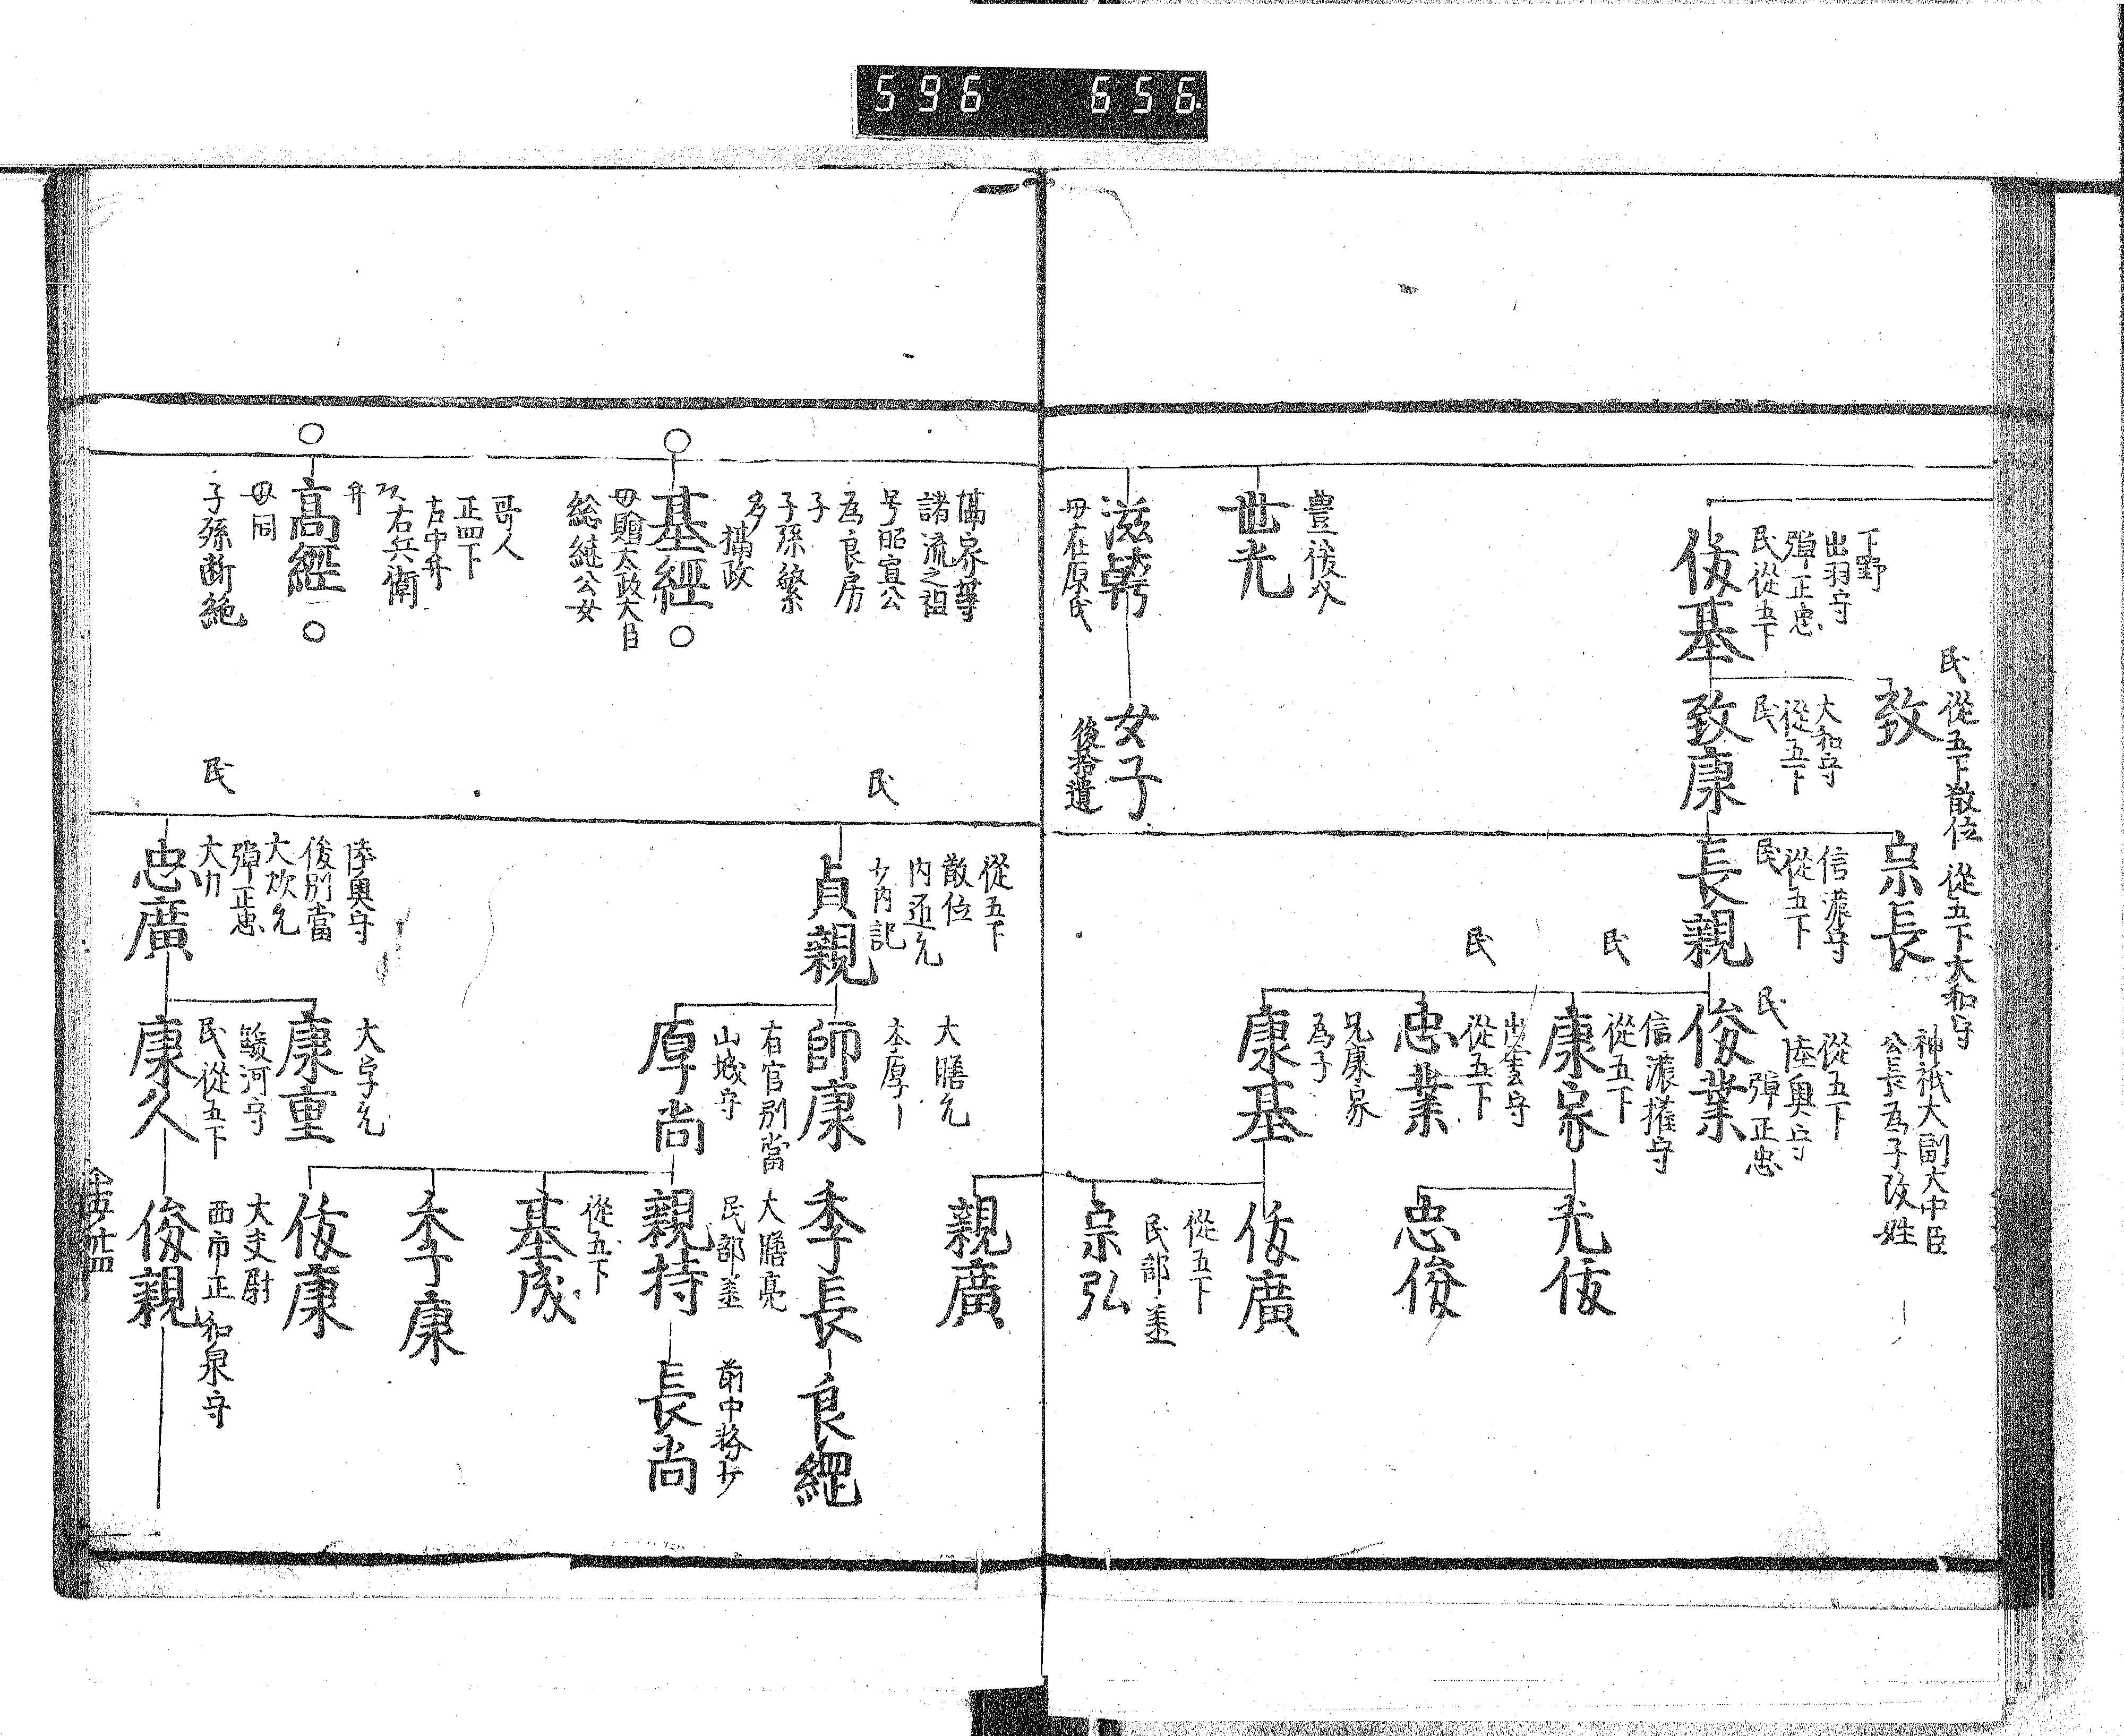 596 656
下野
出羽守
弾正忠
民從五下
俊基
民 從五下散位
致
大和守
從五下
民
致康
從五下大和守
宗長
神祇大副大中臣
公長為子改姓
信濃守
從五下
民
長親
從五下
陸奥守
弾正忠
民
俊業
民
信濃權守
從五下
康家
光俊
民
出雲守
從五下
忠業
忠俊
兄康家
為子
康基
俊廣
從五下
民部丞
宗弘
親廣
豊後守
世光
滋幹
母在原氏
女子
後拾遺
攝家等
諸流之祖
号昭宣公
為良房
子
子孫繁
多
攝政
基經
母贈太政大臣
総継公女
哥人
正四下
右中弁
右兵衛
弁
高經
母同
子孫断絶
民
從五下
散位
内匠允
少内記
貞親
大膳允
本厚
師康
季長
良縄
右官別當
山城守
厚尚
大膳亮
民部丞
親持
前中務少
長尚
從五下
基成
季康
俊康
民
陸奥守
俊別當
大炊允
弾正忠
大力
忠廣
大学允
康重
駿河守
民從五下
康久
大夫尉
西市正 和泉守
俊親